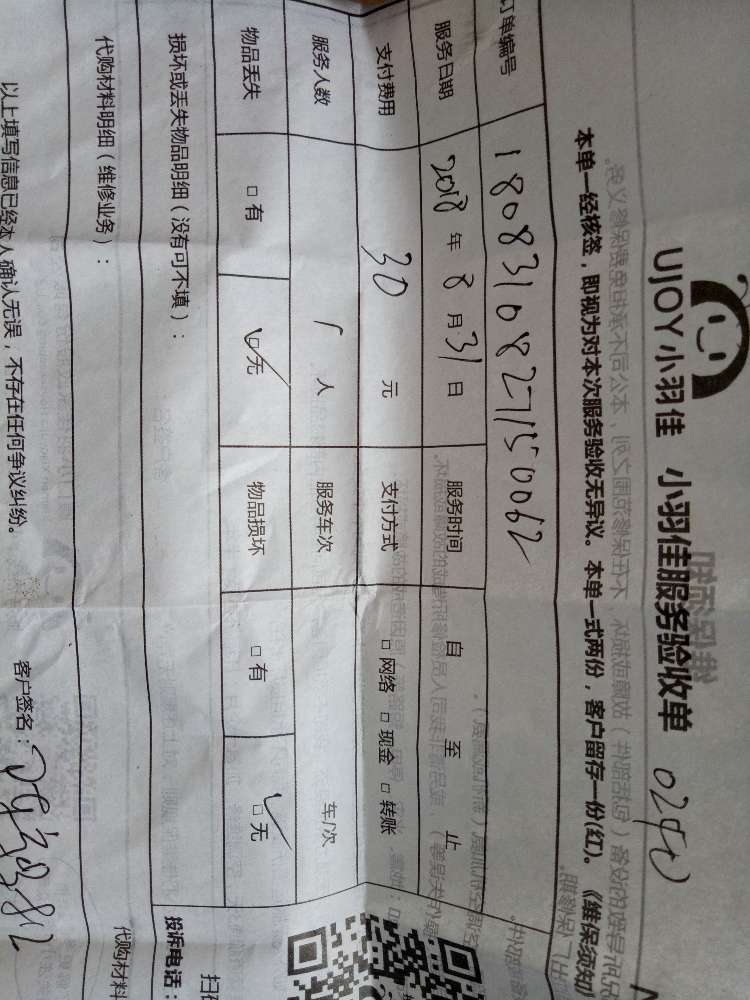 UJOY小羽佳 小羽佳服务验收单 0240
本单一经核签，即视为对本次服务验收无异议。本单一式两份，客户留存一份(红)。《维保须知
订单编号 1808310827150062
服务日期 2018 年 8 月 31 日 服务时间 自 至 止
支付费用 30 元 支付方式 □ 网络 □ 现金 □ 转账
服务人数 1 人 服务车次 车/次
物品丢失 □ 有 ☑ 无 物品损坏 □ 有 ☑ 无
损坏或丢失物品明细（没有可不填）：
投诉电话：
代购材料明细（维修业务）：
代购材料
以上填写信息已经本人确认无误，不存在任何争议纠纷。 客户签名：